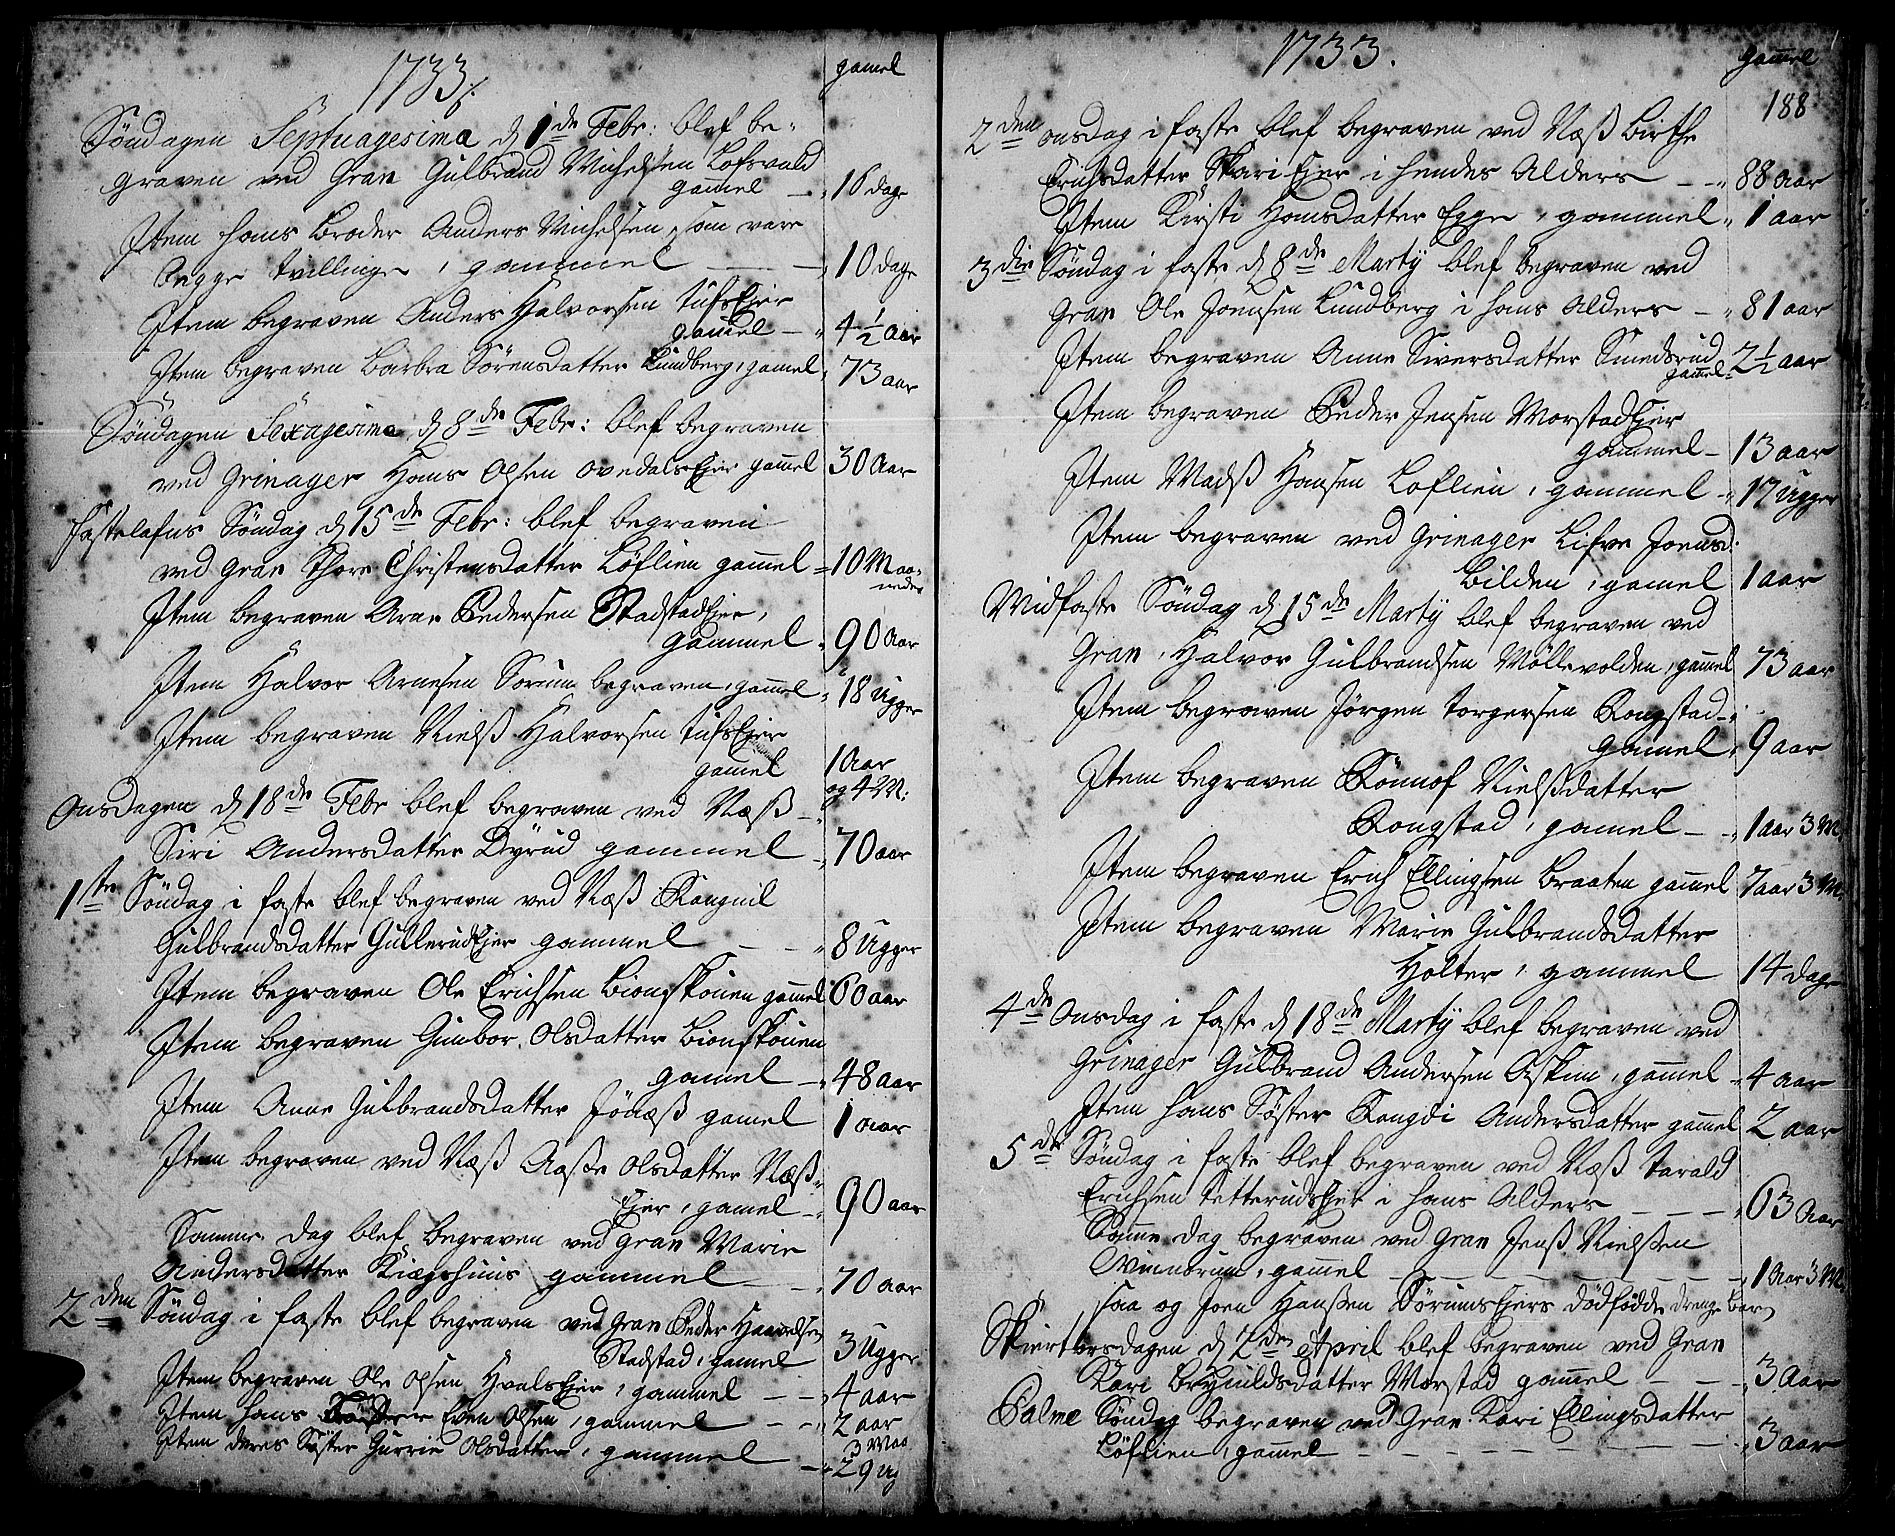 1733
gamel
Søndagen Septuagesima d 1de Febr: blef be-
graven ved Gran Gulbrand Michelsen Lofsvald
gammel — 16 dage
Item hans Broder Anders Michelsen, som vare
begge tvillinge, gammel — 10 dage
Item begraven Anders Halvorsen tufsEjer
gammel — 4½ aar
Item begraven Barbra Sørensdatter Lundberg, gamel 73 aar
Søndagen Sexagesima d 8de Febr: blef begraven
ved Grinager Hans Olsen ovedalsEjer gammel 30 Aar
Fastelafns Søndag d 15de Febr: blef begraven
ved Gran Thore Christensdatter Løflien gammel 10 Maa-
neder
Item begraven Arne Pedersen StadstadEjer,
gammel 90 Aar
Item Halvor Arnesen Sorum begraven, gammel 18 Ugger
Item begraven Nielß Halvorsen tufsEjer
gammel 1 Aar
og 4 M:
Onsdagen d 18de Febr blef begraven ved Næß
Siri Andersdatter Dyrud gammel 70 aar
1ste Søndag i faste blef begraven ved Næß Rangnil
Gulbrandsdatter GullerudEjer gammel — 8 Ugger
Item begraven Ole Erichsen Bionskouen gammel 60 aar
Item begraven Gunbor Olsdatter Bionskouen
gammel — 48 aar
Item Anne Gulbrandsdatter Jønæß gamel 1 aar
Item begraven ved Næß Aaße Olsdatter Næß-
Ejer, gamel 90 aar
Samme dag blef begraven ved Gran Marie
Andersdatter Kiægshuus gammel — 70 aar
2den Søndag i faste blef begraven ved Gran Peder Haavelsen
Stadstad, gamel 3 Ugger
Item begraven Ole Olsen HvalsEjer, gammel — 4 aar
Item hans Even Olsen, gammel — 2 aar
Item deres Søster Gurrie Olsdatter, gammel 3 Maa
— 29 Ug
1733.
gammel
188
2den onsdag i faste blef begraven ved Næß Birthe
Erichsdatter SkariEjer i hendes Alders — 88 aar
Item Kirsti Hansdatter Egge, gammel 1 aar
3die Søndag i faste d 8de Martij blef begraven ved
Gran Ole Joensen Lundberg i hans alders — 81 aar
Item begraven Anne Siversdatter Smedsrud 2½ aar
gammel
Item begraven Peder Jensen MorstadEjer
gammel — 13 aar
Item Madß Hansen Loflien, gammel 17 Ugger
Item begraven ved Grinager Lisve Joensd.
Bilden, gamel 1 aar
Midfaste Søndag d 15de Martij blef begraven ved
Gran, Halvor Gulbrandsen Møllevolden, gammel 73 aar
Item begraven Jørgen torgersen Rongstad
gammel 9 aar
Item begraven Rønnof Nielßdatter
Rongstad, gamel — 1 aar 3 M.
Item begraven Erich Ellingsen Braaten gammel 7 aar 3 M.
Item begraven Marie Gulbrandsdatter
Holter, gammel 14 dage
4de Onsdag i faste d 18de Martij blef begraven ved
Grinager Gulbrand Andersen Askim, gammel 4 aar
Item hans Søster Rangdi Andersdatter gammel 2 aar
5de Søndag i faste blef begraven ved Næß Tarald
Erichsen tetterudsEjer i hans Alders — 63 Aar
Samme dag begraven ved Gran Jenß Nielsen
Vinnorum, gammel — 1 Aar 3 M.
saa og Joen Hansen SørumsEjers dødfødde drenge barn
Skiertorsdagen d 2den April blef begraven ved Gran
Kari Brynildsdatter Morstad gammel — 3 Aar
Palme Søndag begraven ved Gran Kari Ellingsdatter
Løflien, gammel — 3 aar